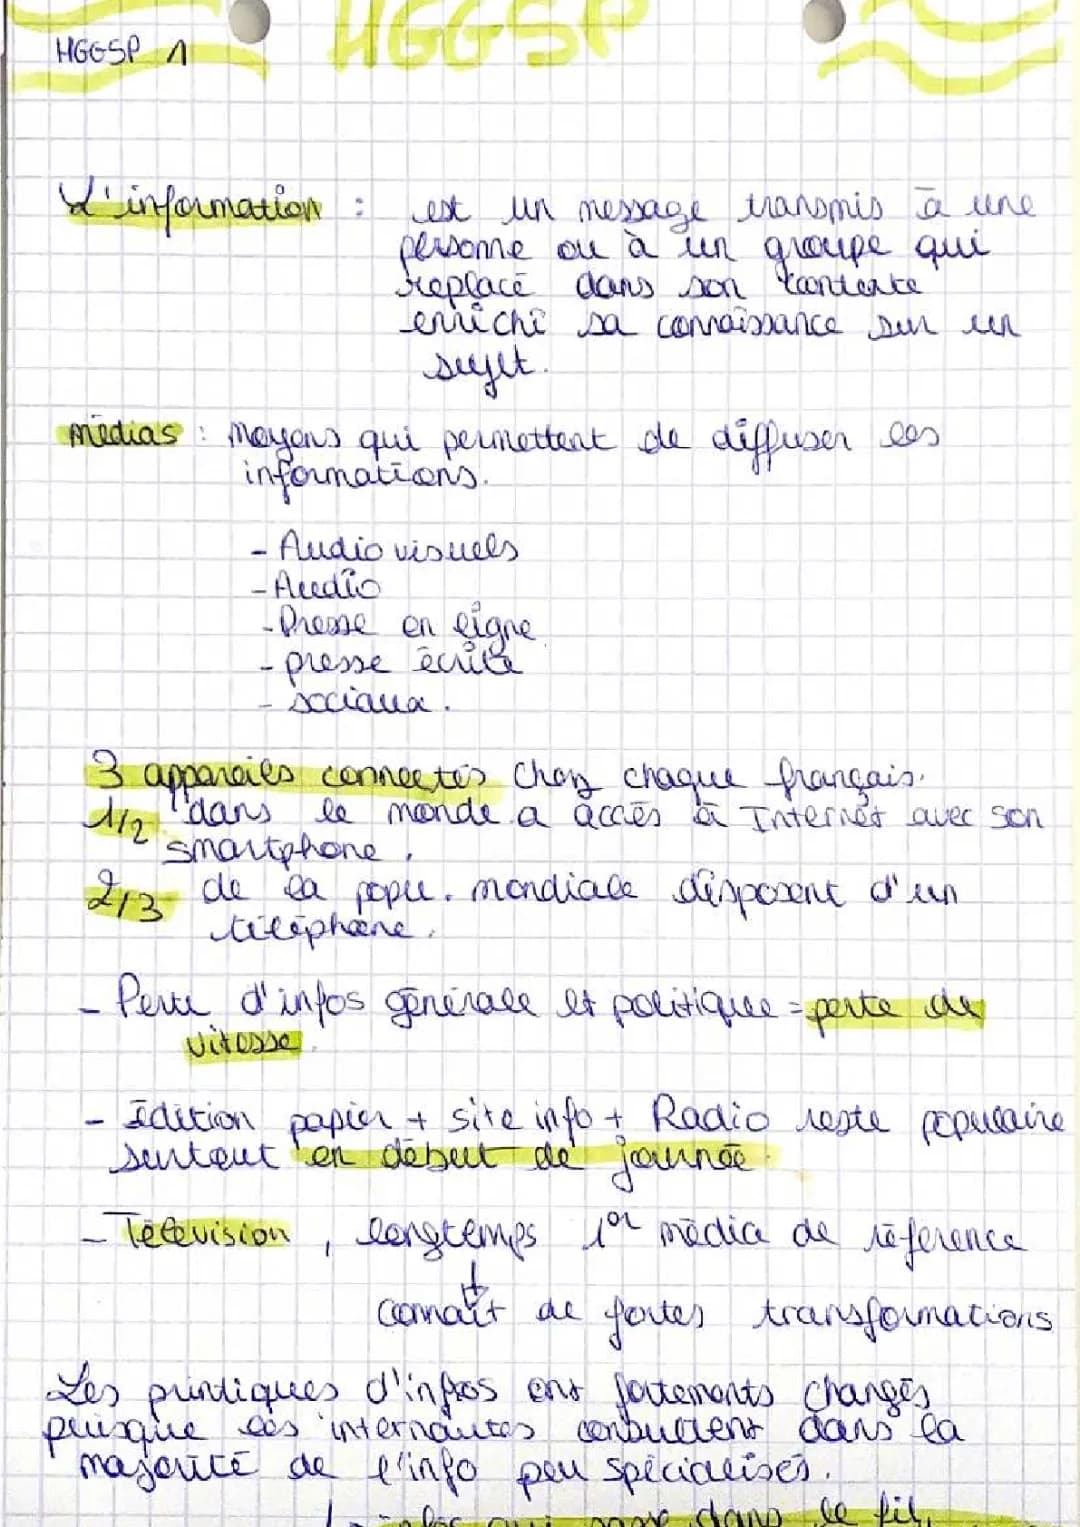 HGGSP
HGGSP 1
L'information : est un message transmis à une
personne ou à un groupe qui
replacé dans son contexte
enrichi sa connaissance sur un
sujet.
médias : Moyens qui permettent de diffuser les
informations.
- Audio visuels
- Audio
- Presse en ligne
- presse écrite
- sociaux.
3 appareils connectés chez chaque français.
1/2 dans le monde a accès à Internet avec son
smartphone.
2/3 de la popu. mondiale disposent d'un
téléphone.
- Perte d'infos générale et politique = perte de
vitesse.
- Édition papier + site info + Radio reste populaire
surtout en début de journée.
- Télévision, longtemps 1er média de référence
↓
connaît de fortes transformations
Les d'infos ont fortements changés
puisque les internautes consultent dans la
majorité de l'info peu spécialisés.
infos qui passe dans le fil